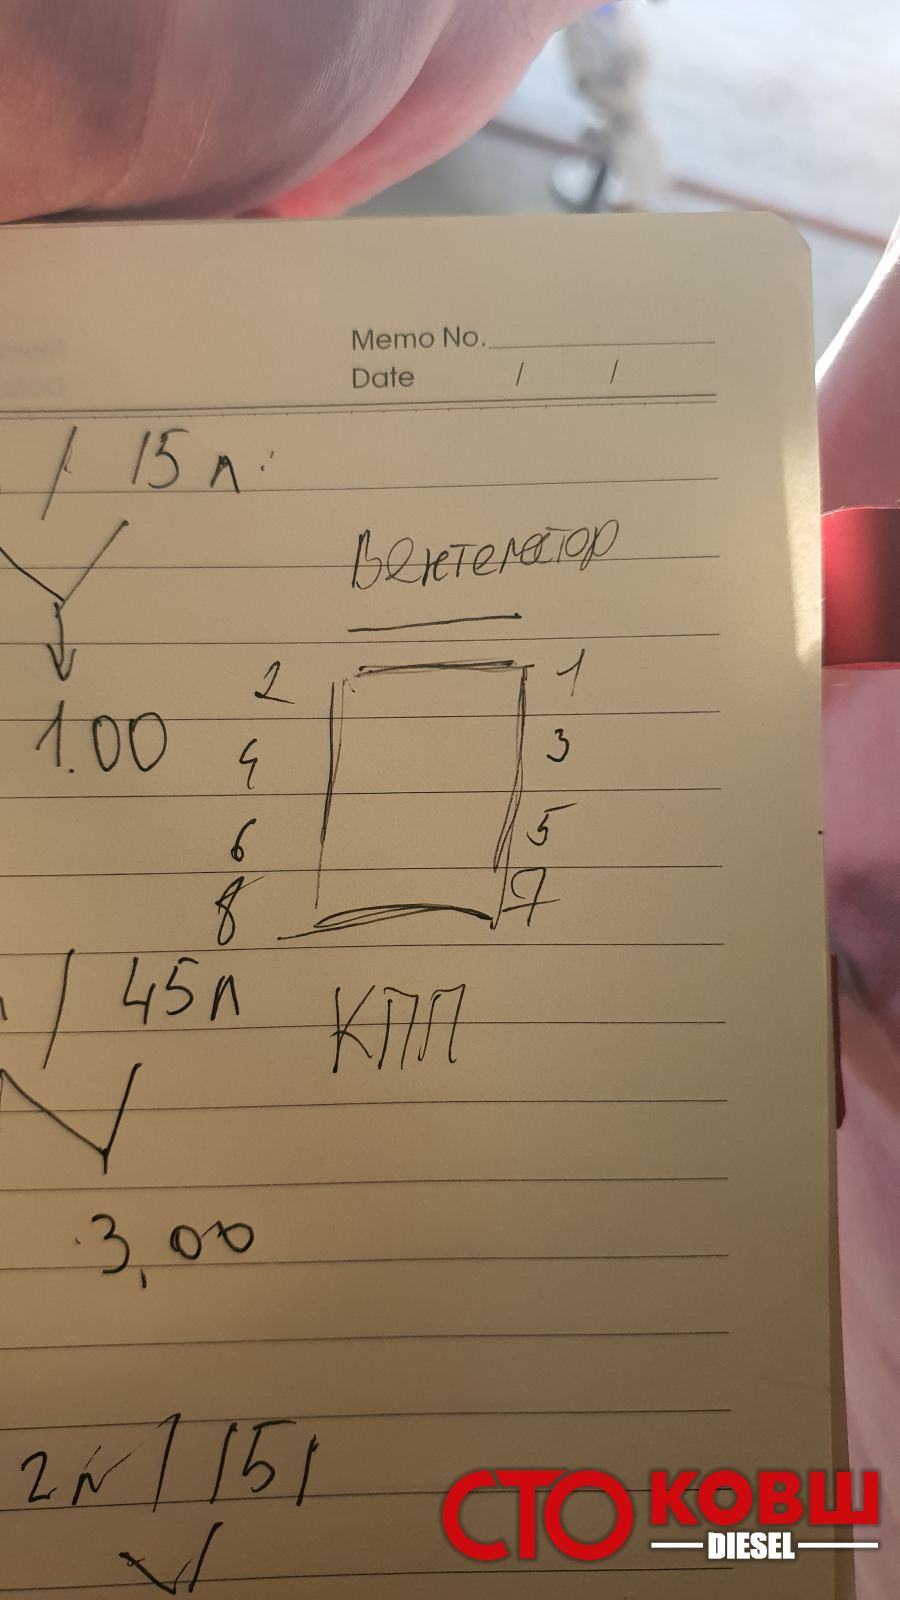 Memo No.
Date / /
/ 15 л
Вентелятор
2 1
1.00
4 3
6 5
8 7
/ 45 л
КПП
3,00
2 л / 15 л
СТО КОВШ
DIESEL